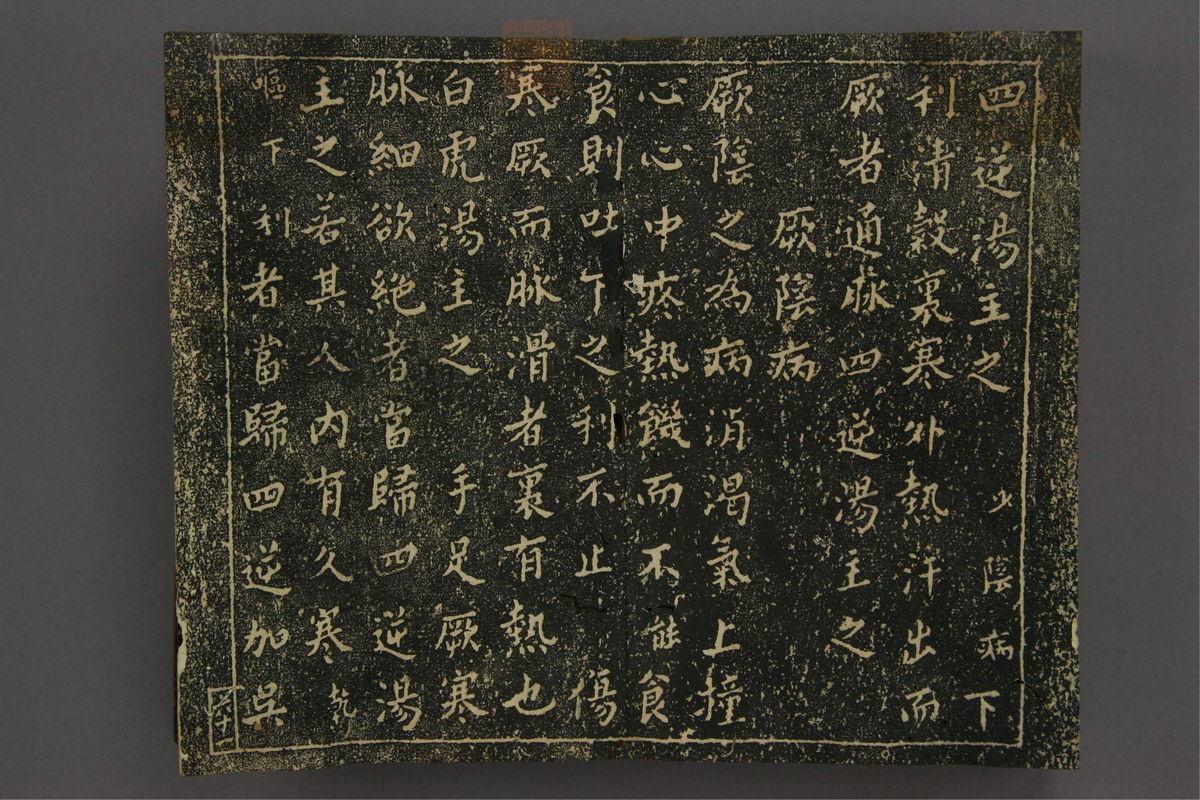 四逆湯主之 少陰病下
利清穀裏寒外熱汗出而
厥者通脉四逆湯主之
厥陰病
厥陰之為病消渴氣上撞
心心中疼熱饑而不能食
食則吐下之利不止 傷
寒厥而脉滑者裏有熱也
白虎湯主之 手足厥寒
脉細欲絕者當歸四逆湯
主之若其人内有久寒
嘔下利者當歸四逆加吳